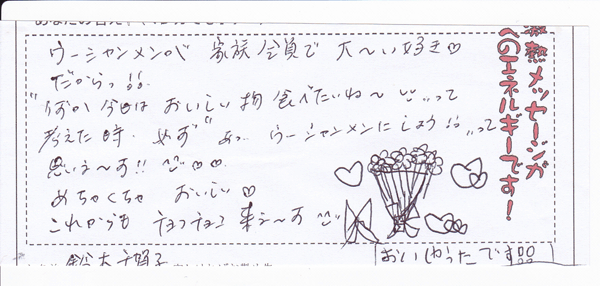 ウーシャンメンが 家族全員で 大〜い好き♡
だからっ!!
"何か今日は おいしい物 食べたいね〜 って
考えた時、必ず"あっ、ウーシャンメンにしよう!!って
思いま〜す!!♡♡
めちゃくちゃ おいしい♡
これからも チョコチョコ 来ま〜す
熱メッセージが
へのエネルギーです!
おいしかったです!!